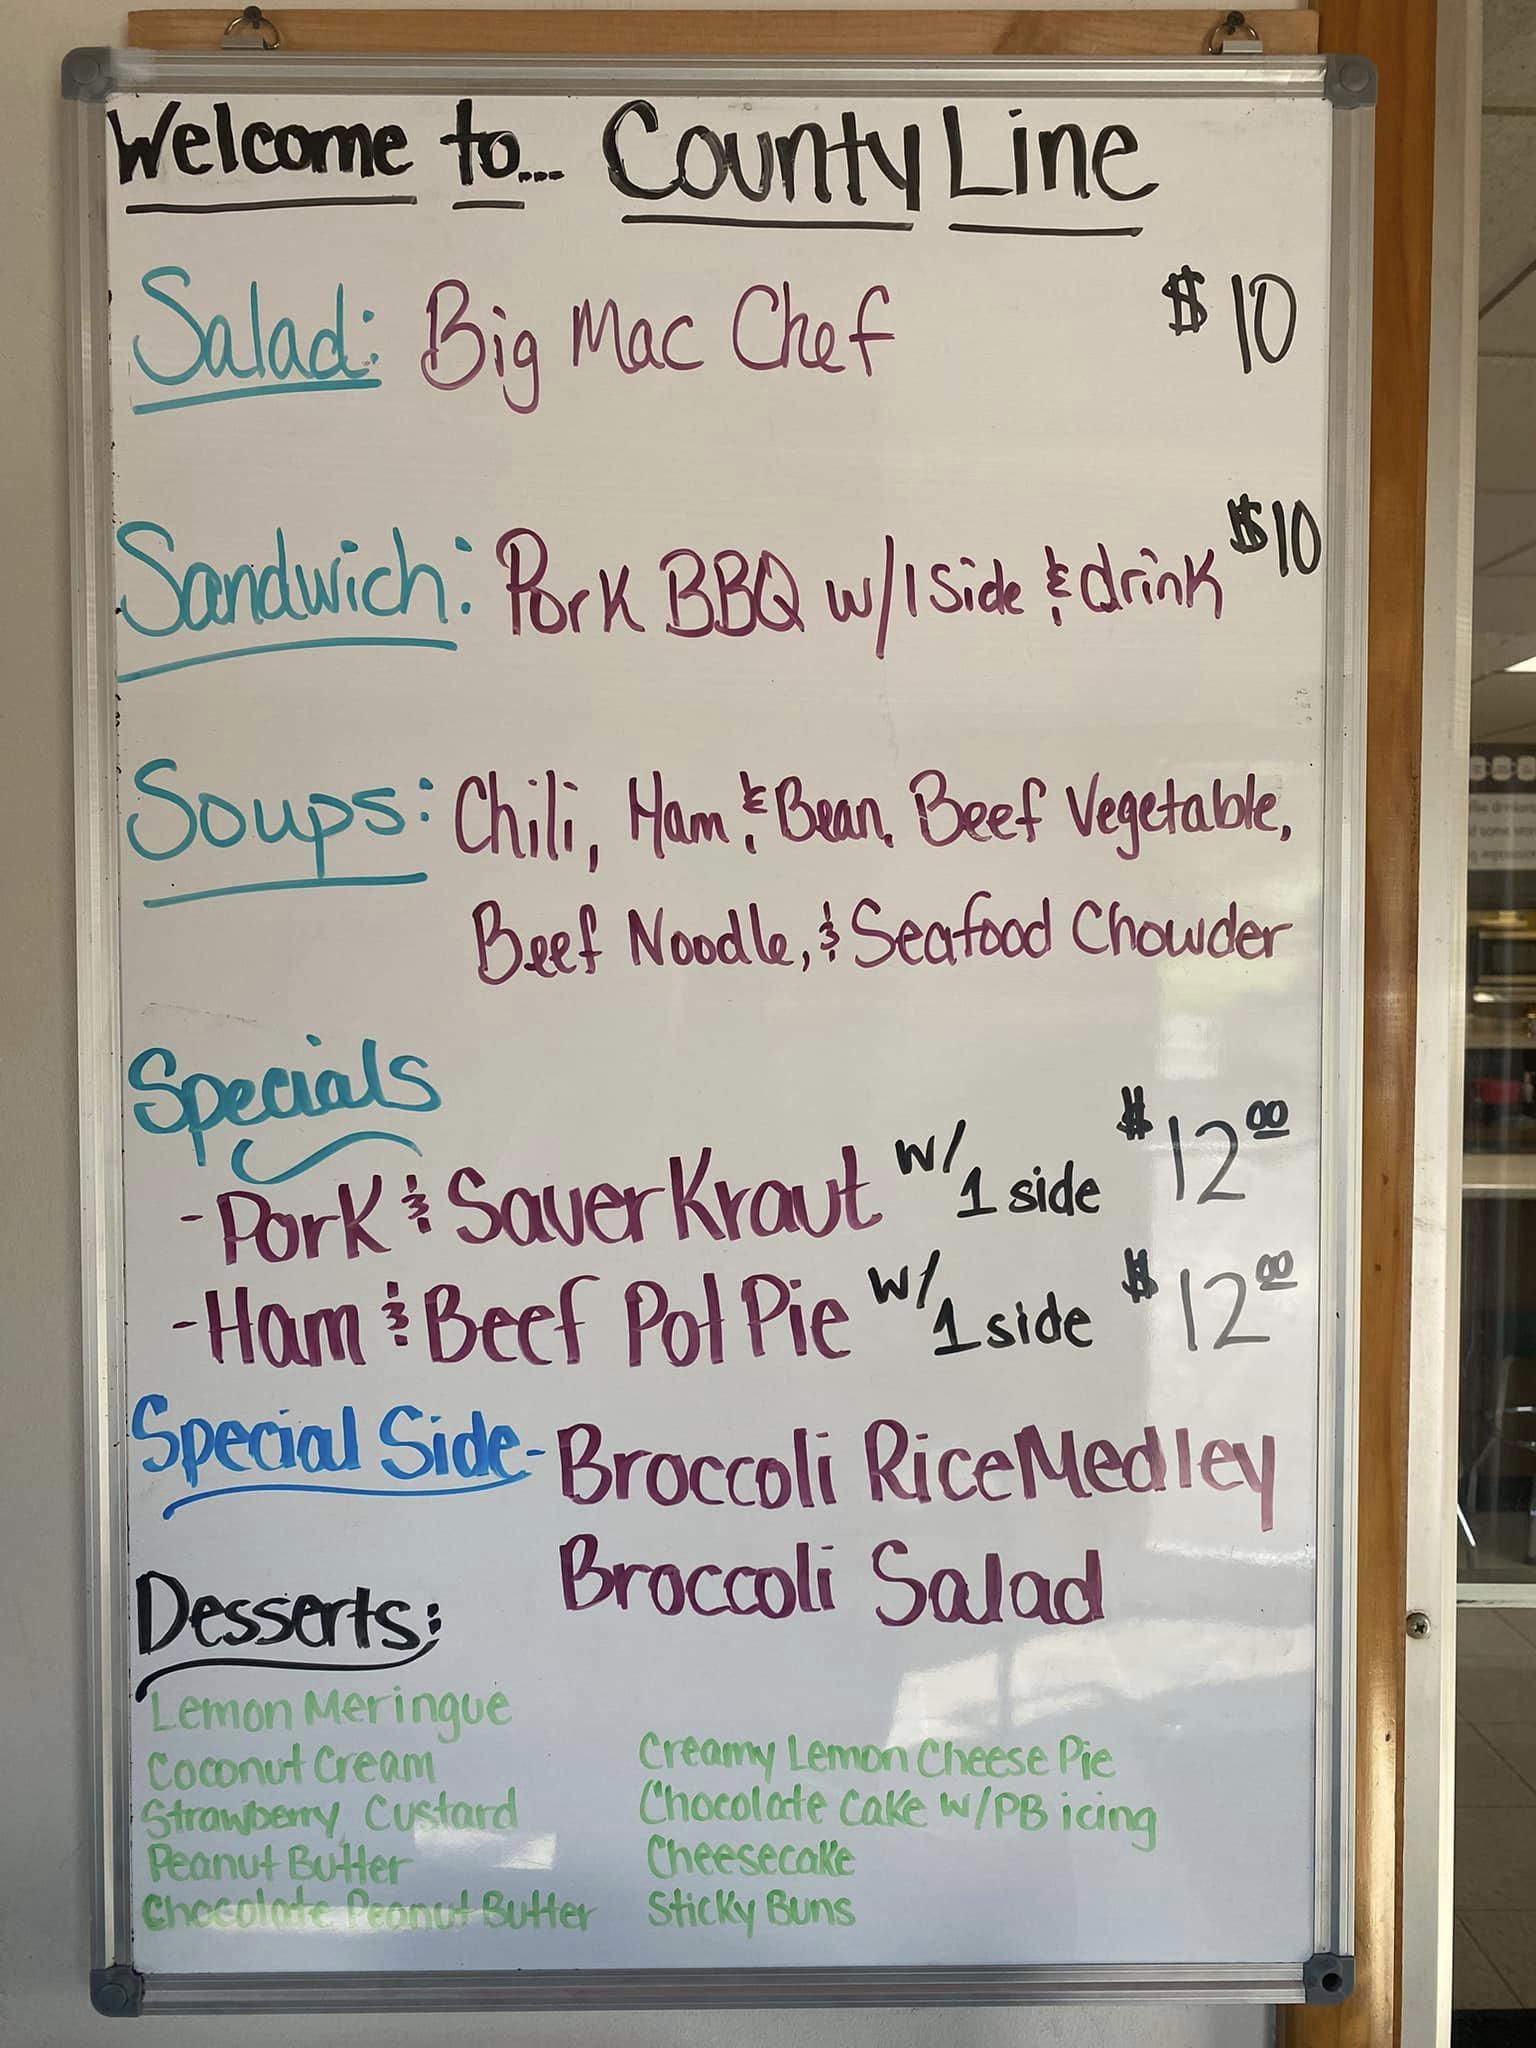 Welcome to... County Line
Salad: Big Mac Chef $10
Sandwich: Pork BBQ w/1 side & drink $10
Soups: Chili, Ham & Bean, Beef Vegetable,
Beef Noodle, & Seafood Chowder
Specials
- Pork & SauerKraut w/ 1 side $12.00
- Ham & Beef Pot Pie w/ 1 side $12.00
Special Side - Broccoli Rice Medley
Broccoli Salad
Desserts:
Lemon Meringue
Coconut Cream
Strawberry Custard
Peanut Butter
Chocolate Peanut Butter
Creamy Lemon Cheese Pie
Chocolate Cake w/PB icing
Cheesecake
Sticky Buns